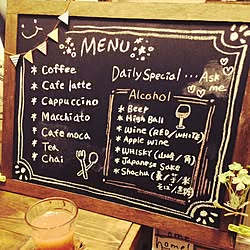 MENU
Daily Special … Ask me
* Coffee
* Cafe latte
* Cappuccino
* Macchiato
* Cafe moca
* Tea
* Chai
Alcohol
* Beer
* High Ball
* Wine (RED/WHITE)
* Apple wine
* WHISKY (山崎/角)
* Japanese Sake
* Shochu (麦/芋/米
home!